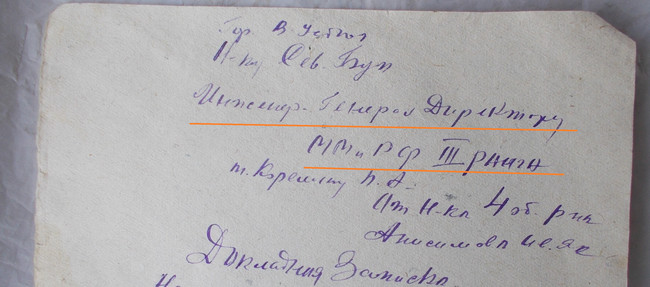 Гор. В Устюг
Н-ку Сев. Буп
Инженер-Генерал Директору
ММ и РФ III ранга
т. Карелину П. А.
От Н-ка 4 об. р-на
Анисимова
Докладная Записка.